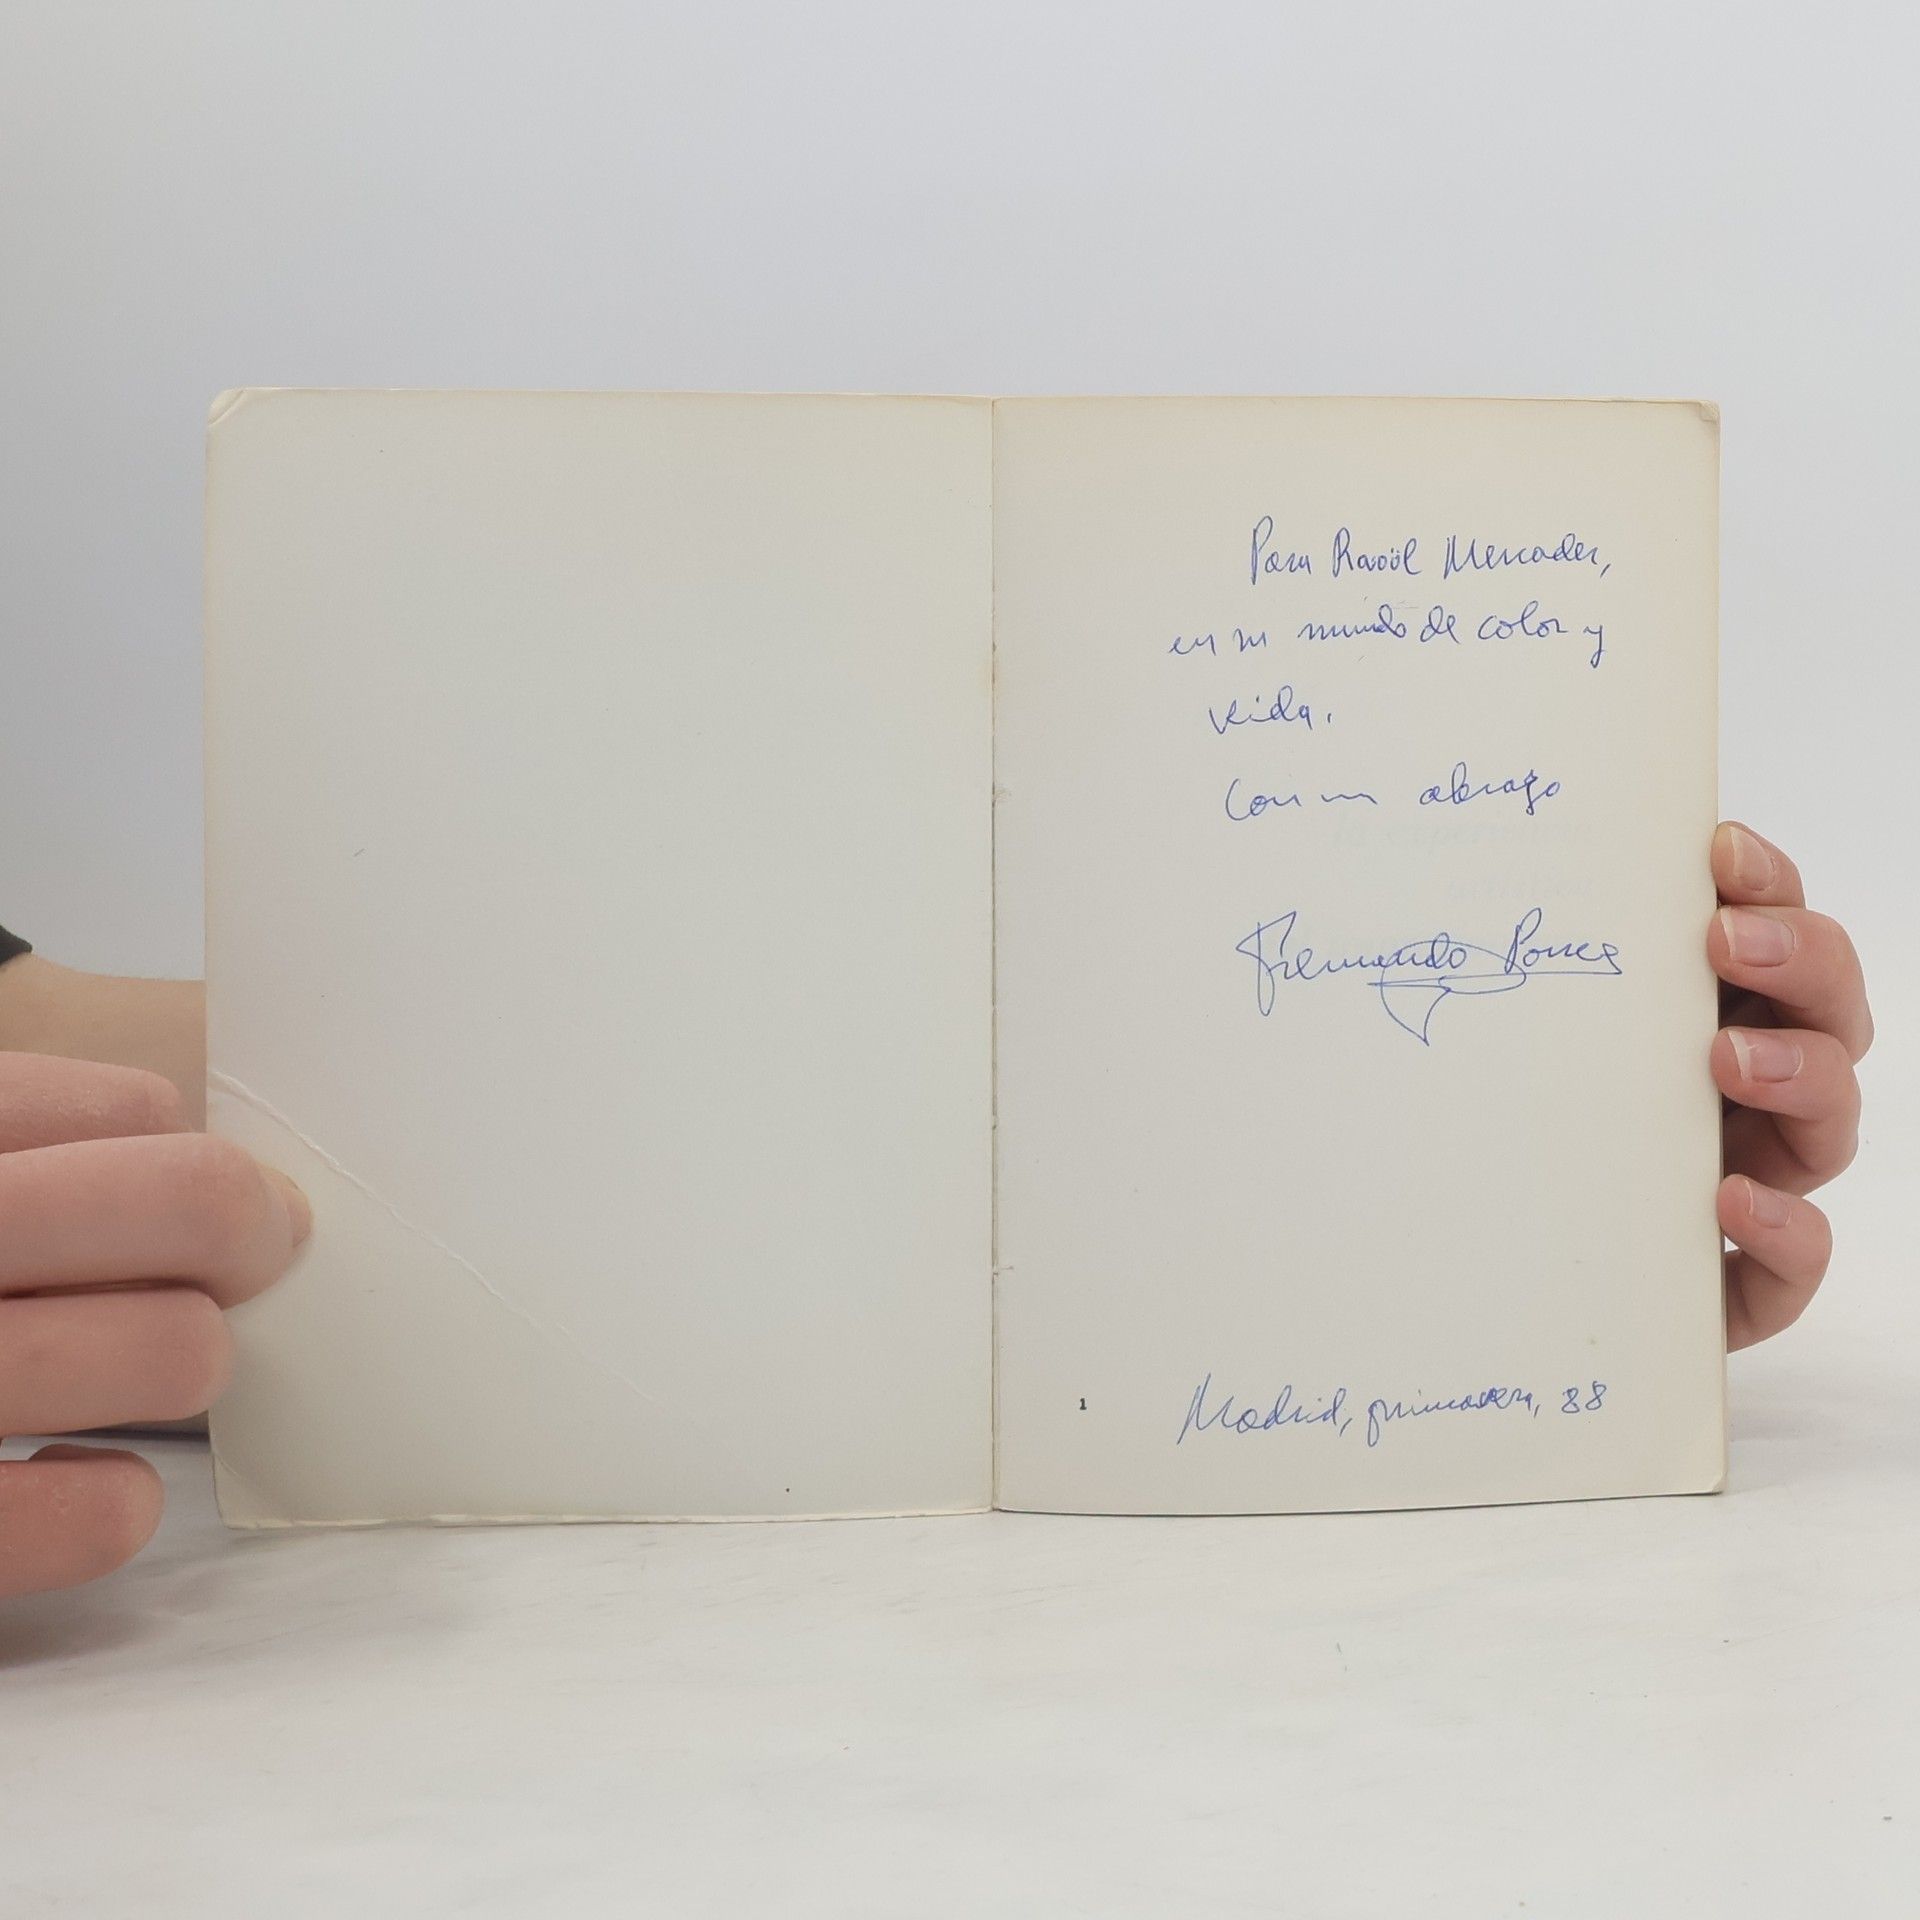 Para Raoül Mercader,
en su mundo de color y
vida.
Con un abrazo
Fernando Ponce
1
Madrid, primavera, 88